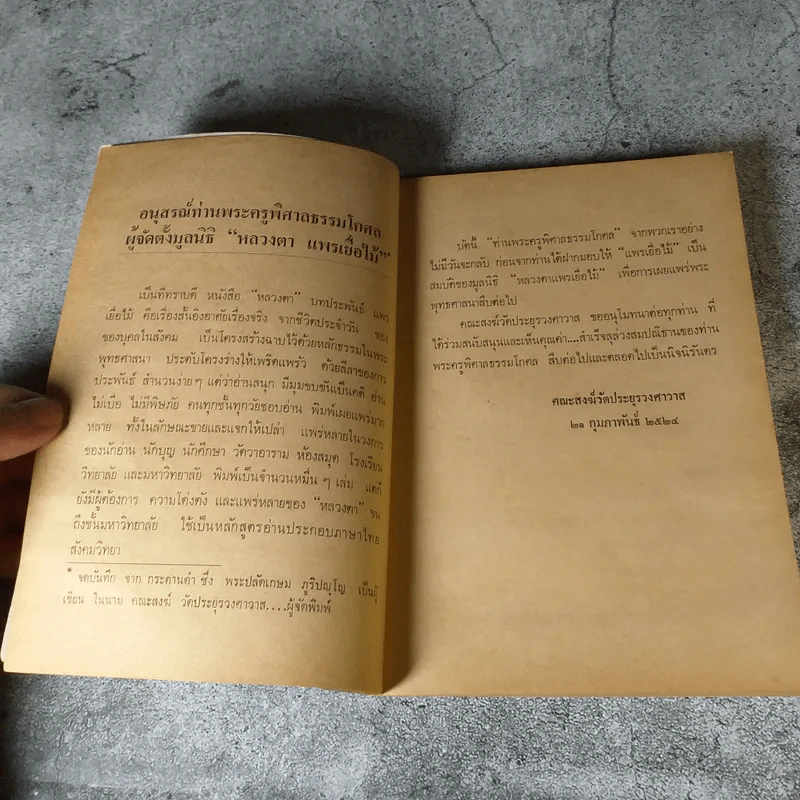 อนุสรณ์ท่านพระครูพิศาลธรรมโกศล
ผู้จัดตั้งมูลนิธิ “หลวงตา แพรเยื่อไม้”*
เป็นที่ทราบดี หนังสือ “หลวงตา” บทประพันธ์ แพร
เยื่อไม้ คือเรื่องสั้นอิงอาศัยเรื่องจริง จากชีวิตประจำวัน ของ
ของบุคลในสังคม เป็นโครงสร้างฉาบไว้ด้วยหลักธรรมในพระ
พุทธศาสนา ประดับโครงร่างให้เพริดแพร้ว ด้วยลีลาของการ
ประพันธ์ สำนวนง่ายๆ แต่ว่าอ่านสนุก มีมุมขบขันเป็นคติ อ่าน
ไม่เบื่อ ไม่มีพิษภัย คนทุกชั้นทุกวัยชอบอ่าน พิมพ์เผยแพร่มาก
หลาย ทั้งในลักษณะขายและแจกให้เปล่า แพร่หลายในวงการ
ของนักอ่าน นักบุญ นักศึกษา วัดวาอาราม ห้องสมุด โรงเรียน
วิทยาลัย และมหาวิทยาลัย พิมพ์เป็นจำนวนหมื่น ๆ เล่ม แต่ก็
ยังมีผู้ต้องการ ความโด่งดัง และแพร่หลายของ “หลวงตา” จน
ถึงชั้นมหาวิทยาลัย ใช้เป็นหลักสูตรอ่านประกอบภาษาไทย
สังคมวิทยา
* จดบันทึก จาก กระดานดำ ซึ่ง พระปลัดเกษม ภูริปญฺโญ เป็นผู้
เขียน ในนาม คณะสงฆ์ วัดประยุรวงศาวาส....ผู้จัดพิมพ์
บัดนี้ “ท่านพระครูพิศาลธรรมโกศล” จากพวกเราอย่าง
ไม่มีวันจะกลับ ก่อนจากท่านได้ฝากมอบให้ “แพรเยื่อไม้” เป็น
สมบัติของมูลนิธิ “หลวงตาแพรเยื่อไม้” เพื่อการเผยแพร่พระ
พุทธศาสนาสืบต่อไป
คณะสงฆ์วัดประยุรวงศาวาส ขออนุโมทนาต่อทุกท่าน ที่
ได้ร่วมสนับสนุนและเห็นคุณค่า....สำเร็จลุล่วงสมปณิธานของท่าน
พระครูพิศาลธรรมโกศล สืบต่อไปและตลอดไปเป็นนิจนิรันดร
คณะสงฆ์วัดประยุรวงศาวาส
๒๑ กุมภาพันธ์ ๒๕๒๔